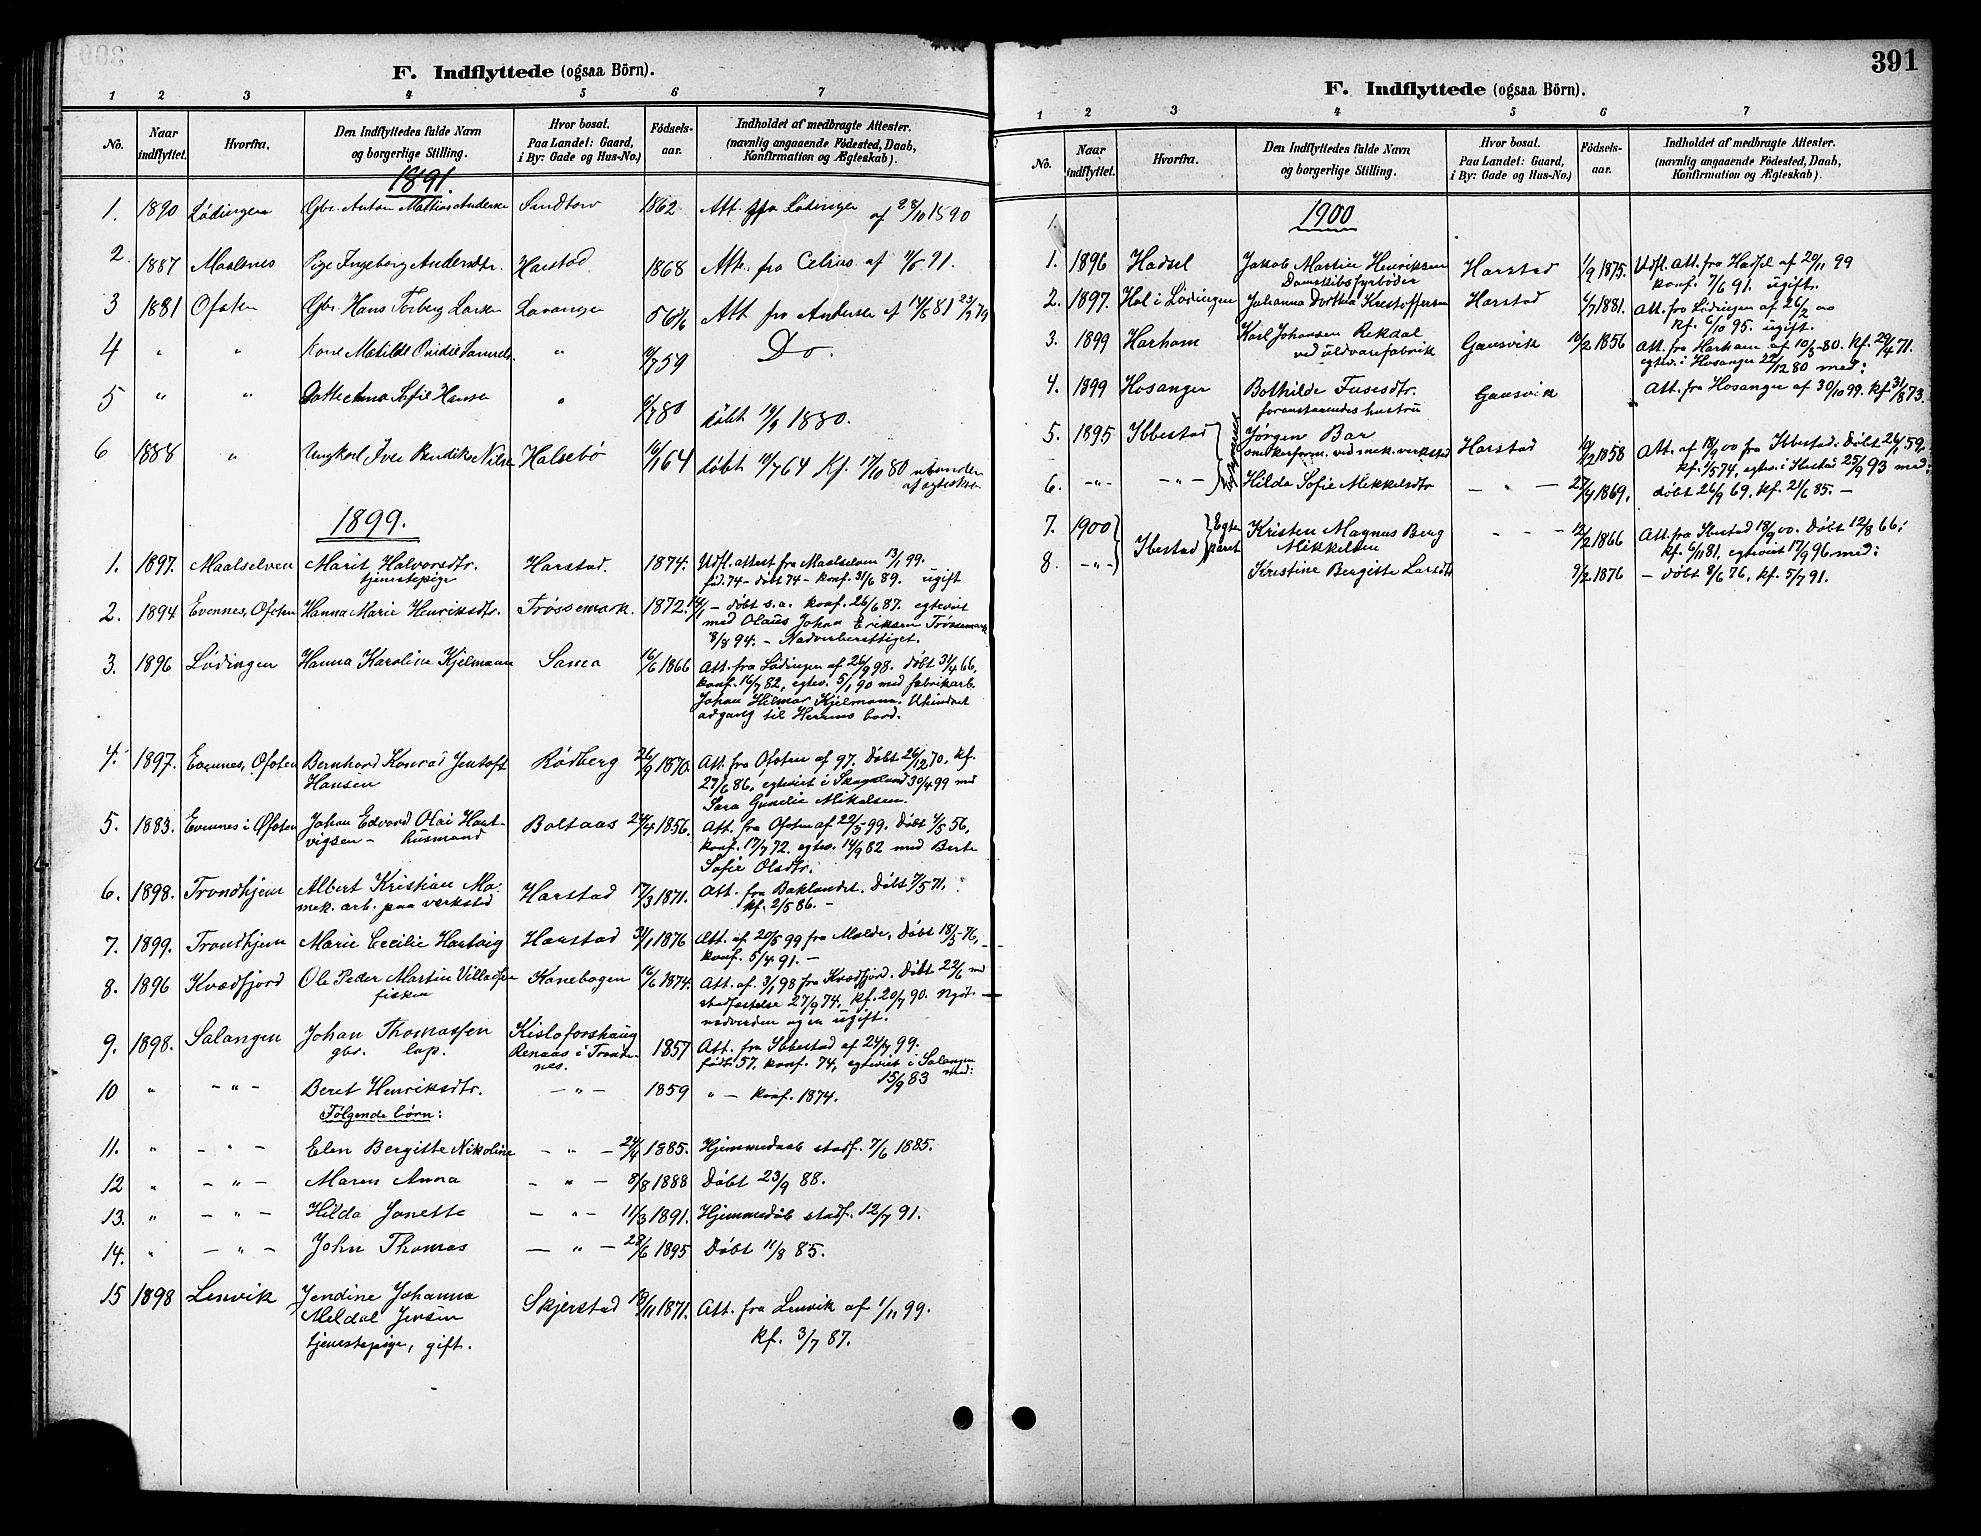 F. Indflyttede (ogsaa Börn).
1 2 3 4 5 6 7
No. Naar indflyttet. Hvorfra. Den Indflyttedes fulde Navn og borgerlige Stilling. Hvor bosat. Paa Landet: Gaard, i By: Gade og Hus-No.) Födsels-aar. Indholdet af medbragte Attester. (navnlig angaaende Födested, Daab, Konfirmation og Ægteskab).
1891.
1. 1890 Lødingen Gbr. Anton Mathias Anderse Sandtorv 1862 Att. fra Lødingen af 28/10 1890
2 1887 Maalsnes Pige Ingeborg Andersdtr. Harstad 1868 Att. fra
3 1881 Ofoten Gbr. Hans Torberg Larsen Lavangen Att. fra
4 " " Kone Matilde " 59 Do.
5 " " Sofie Hanse " 80 døbt 1880.
6 1888 " Ungkarl Iver Bendik Nilse Halsebø 64 døbt 64 Kf. 80 ubunden
af egteskab
1899.
1. 1897. Maalselven Marit Halvorsdtr. Harstad. 1874. Udfl. attest fra Maalselven 13/1 99.
tjenestepige fød. 74 - døbt 74 - konf. 31/6 89. ugift
2. 1894 Evennes, Ofoten Hanna Marie Henriksdtr. Trøssemark. 1872. - døbt s.a. konf. 26/6 87. egteviet
med Olaus Johan Eriksen Trøssemark
8/8 94. - Nadverberettiget.
3. 1896 Lødingen Hanna Karoline Kjelmann Sama 16/6 1866 Att. fra Lødingen af 26/9 98. døbt 31/4 66,
konf. 16/7 82, egtev. 5/1 90 med fabrikarb.
Johan Hilmar Kjelmann. Uhindret
adgang til Herrens bord.
4. 1897. Evennes, Ofoten Bernhard Konrad Jentoft Rødberg 26/9 1870. Att. fra Ofoten af 97. Døbt 26/12 70, kf.
Hansen 27/6 86, egteviet i 30/4 99 med
Sara Gunelie Mikalsen.
5. 1883. Evennes i Ofoten Johan Edvard Olai Hart- Boltaas 24/4 1856. Att. fra Ofoten af 22/5 99. Døbt 4/5 56,
vigsen - husmand konf. 17/7 72. egtev. 14/9 82 med Berte
Sofie Olsdtr.
6. 1898. Trondhjem Albert Kristian Mo. Harstad 17/3 1871. Att. fra Baklandet. Døbt 7/5 71.
mek. arb. paa verksted kf. 2/5 86. -
7. 1899. Trondhjem Marie Cecilie Hartvig Harstad 31/1 1876 Att. af 20/5 99 fra Molde. Døbt 18/5 76,
konf. 5/4 91. -
8. 1896 Kvædfjord Ole Peder Martin Kanebogen 16/6 1874. Att. af 3/1 98 fra Kvædfjord. Døbt 22/6 med
stadfæstelse 27/9 74, kf. 20/7 90. Nydt
nadverden og er ugift.
9. 1898. Salangen Johan Thomassen 1857 Att. fra Ibbestad af 24/7 99.
gbr. lap. Renaas i Tronde-
nes. født 57. konf. 74, egteviet i Salangen
15/9 83 med:
10 " - " - Beret Henriksdtr. - " - 1859 " - konf. 1874.
Følgende børn:
11. " - " - Elen Bergitte Nikoline - " - 24/4 1885. Hjemmedaab stadf. 7/6 1885.
12 " - " - Maren Anna - " - 8/8 1888 Døbt 23/9 88.
13. " - " - Hilda Janette - " - 11/3 1891. Hjemmedøb stadf. 12/7 91.
14. " - " - John Thomas - " - 28/6 1895 Døbt 11/8 85.
15 1898 Lenvik Jendine Johanna Skjerstad 18/11 1871. Att. fra Lenvik af 1/11 99.
Meldal Jensen kf. 3/7 87.
tjenestepige, gift.
391
F. Indflyttede (ogsaa Börn).
1 2 3 4 5 6 7
No. Naar indflyttet. Hvorfra. Den Indflyttedes fulde Navn og borgerlige Stilling. Hvor bosat. Paa Landet: Gaard, i By: Gade og Hus-No.) Födsels-aar. Indholdet af medbragte Attester. (navnlig angaaende Födested, Daab, Konfirmation og Ægteskab).
1. 1900
1. 1896 Hadsel Jakob Martin Henriksen Harstad 1/9 1875. Udfl. att. fra Hadsel af 20/11 99
Damskibsfyrbøder konf. 7/6 91. ugift.
2. 1897. Hol i Lødingen Johanna Dorthea Kristoffersen Harstad 6/7 1881. Att. fra Lødingen af 26/2 00
kf. 6/10 95. ugift.
3. 1899 Harham Karl Johansen Rekdal Gausvik 10/2 1856 Att. fra Harham af 10/5 80. kf. 29/4 71.
ved uldvarefabrik egtev. i Hosanger 22/12 80 med:
4. 1899 Hosanger Bothilde Fusesdtr. Gausvik Att. fra Hosanger af 30/10 99. kf. 31/8 73.
foranstaaendes hustru
5. 1895 Ibbestad Jørgen Bar Harstad 1858 Att. af 18/9 00 fra Ibbestad. Døbt 26/1 59,
ved mek. verksted kf. 74, egtev. i Ibestad 25/9 93 med:
6. - " - - " - Hilda Sofie Mikkelsdtr - " - 27/4 1869. døbt 26/9 69, kf. 21/6 85. -
7. 1900 Ibestad Egteparet Kristen Magnus Berg - - - 12/2 1866 Att. fra Ibestad 18/9 00. Døbt 12/8 66;
Mikkelsen kf. 6/11 81, egteviet 17/9 96 med:
8. - " - Kristine Bergitte Larsdtr 9/2 1876 - døbt 8/6 76, kf. 5/7 91.